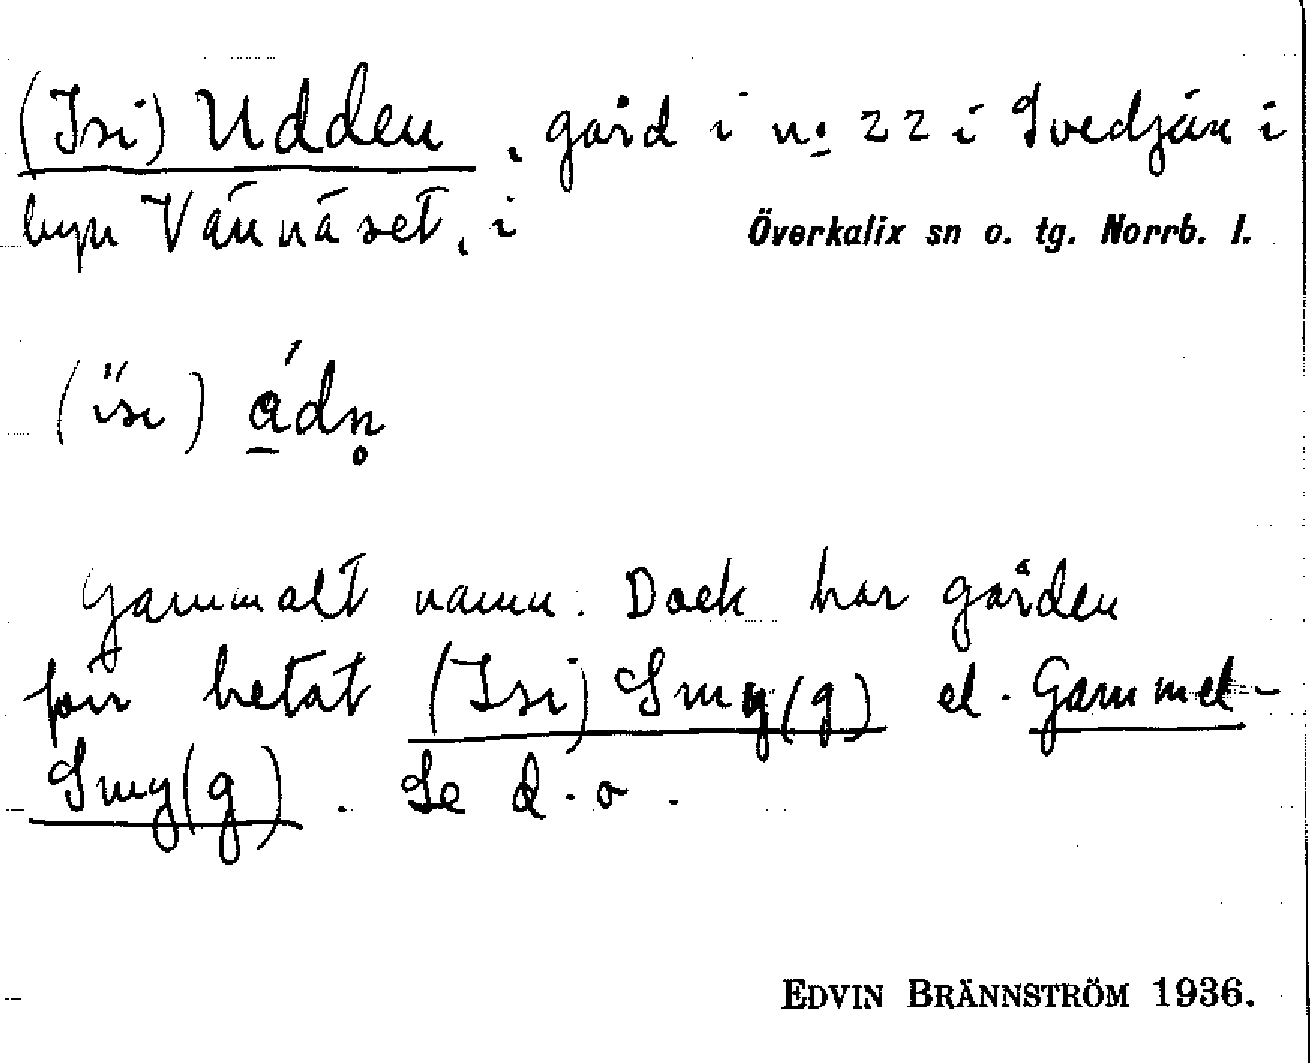 (Isi) Udden, gård i nº 22 i Svedjan i
byn Vännäset, i Överkalix sn o. tg. Norrb. l.
(i̋si) ádn̥
Gammalt namn. Dock har gården
förr hetat (Isi) Smyg(g) el. Gammel-
Smyg(g). Se d.o.
EDVIN BRÄNNSTRÖM 1936.